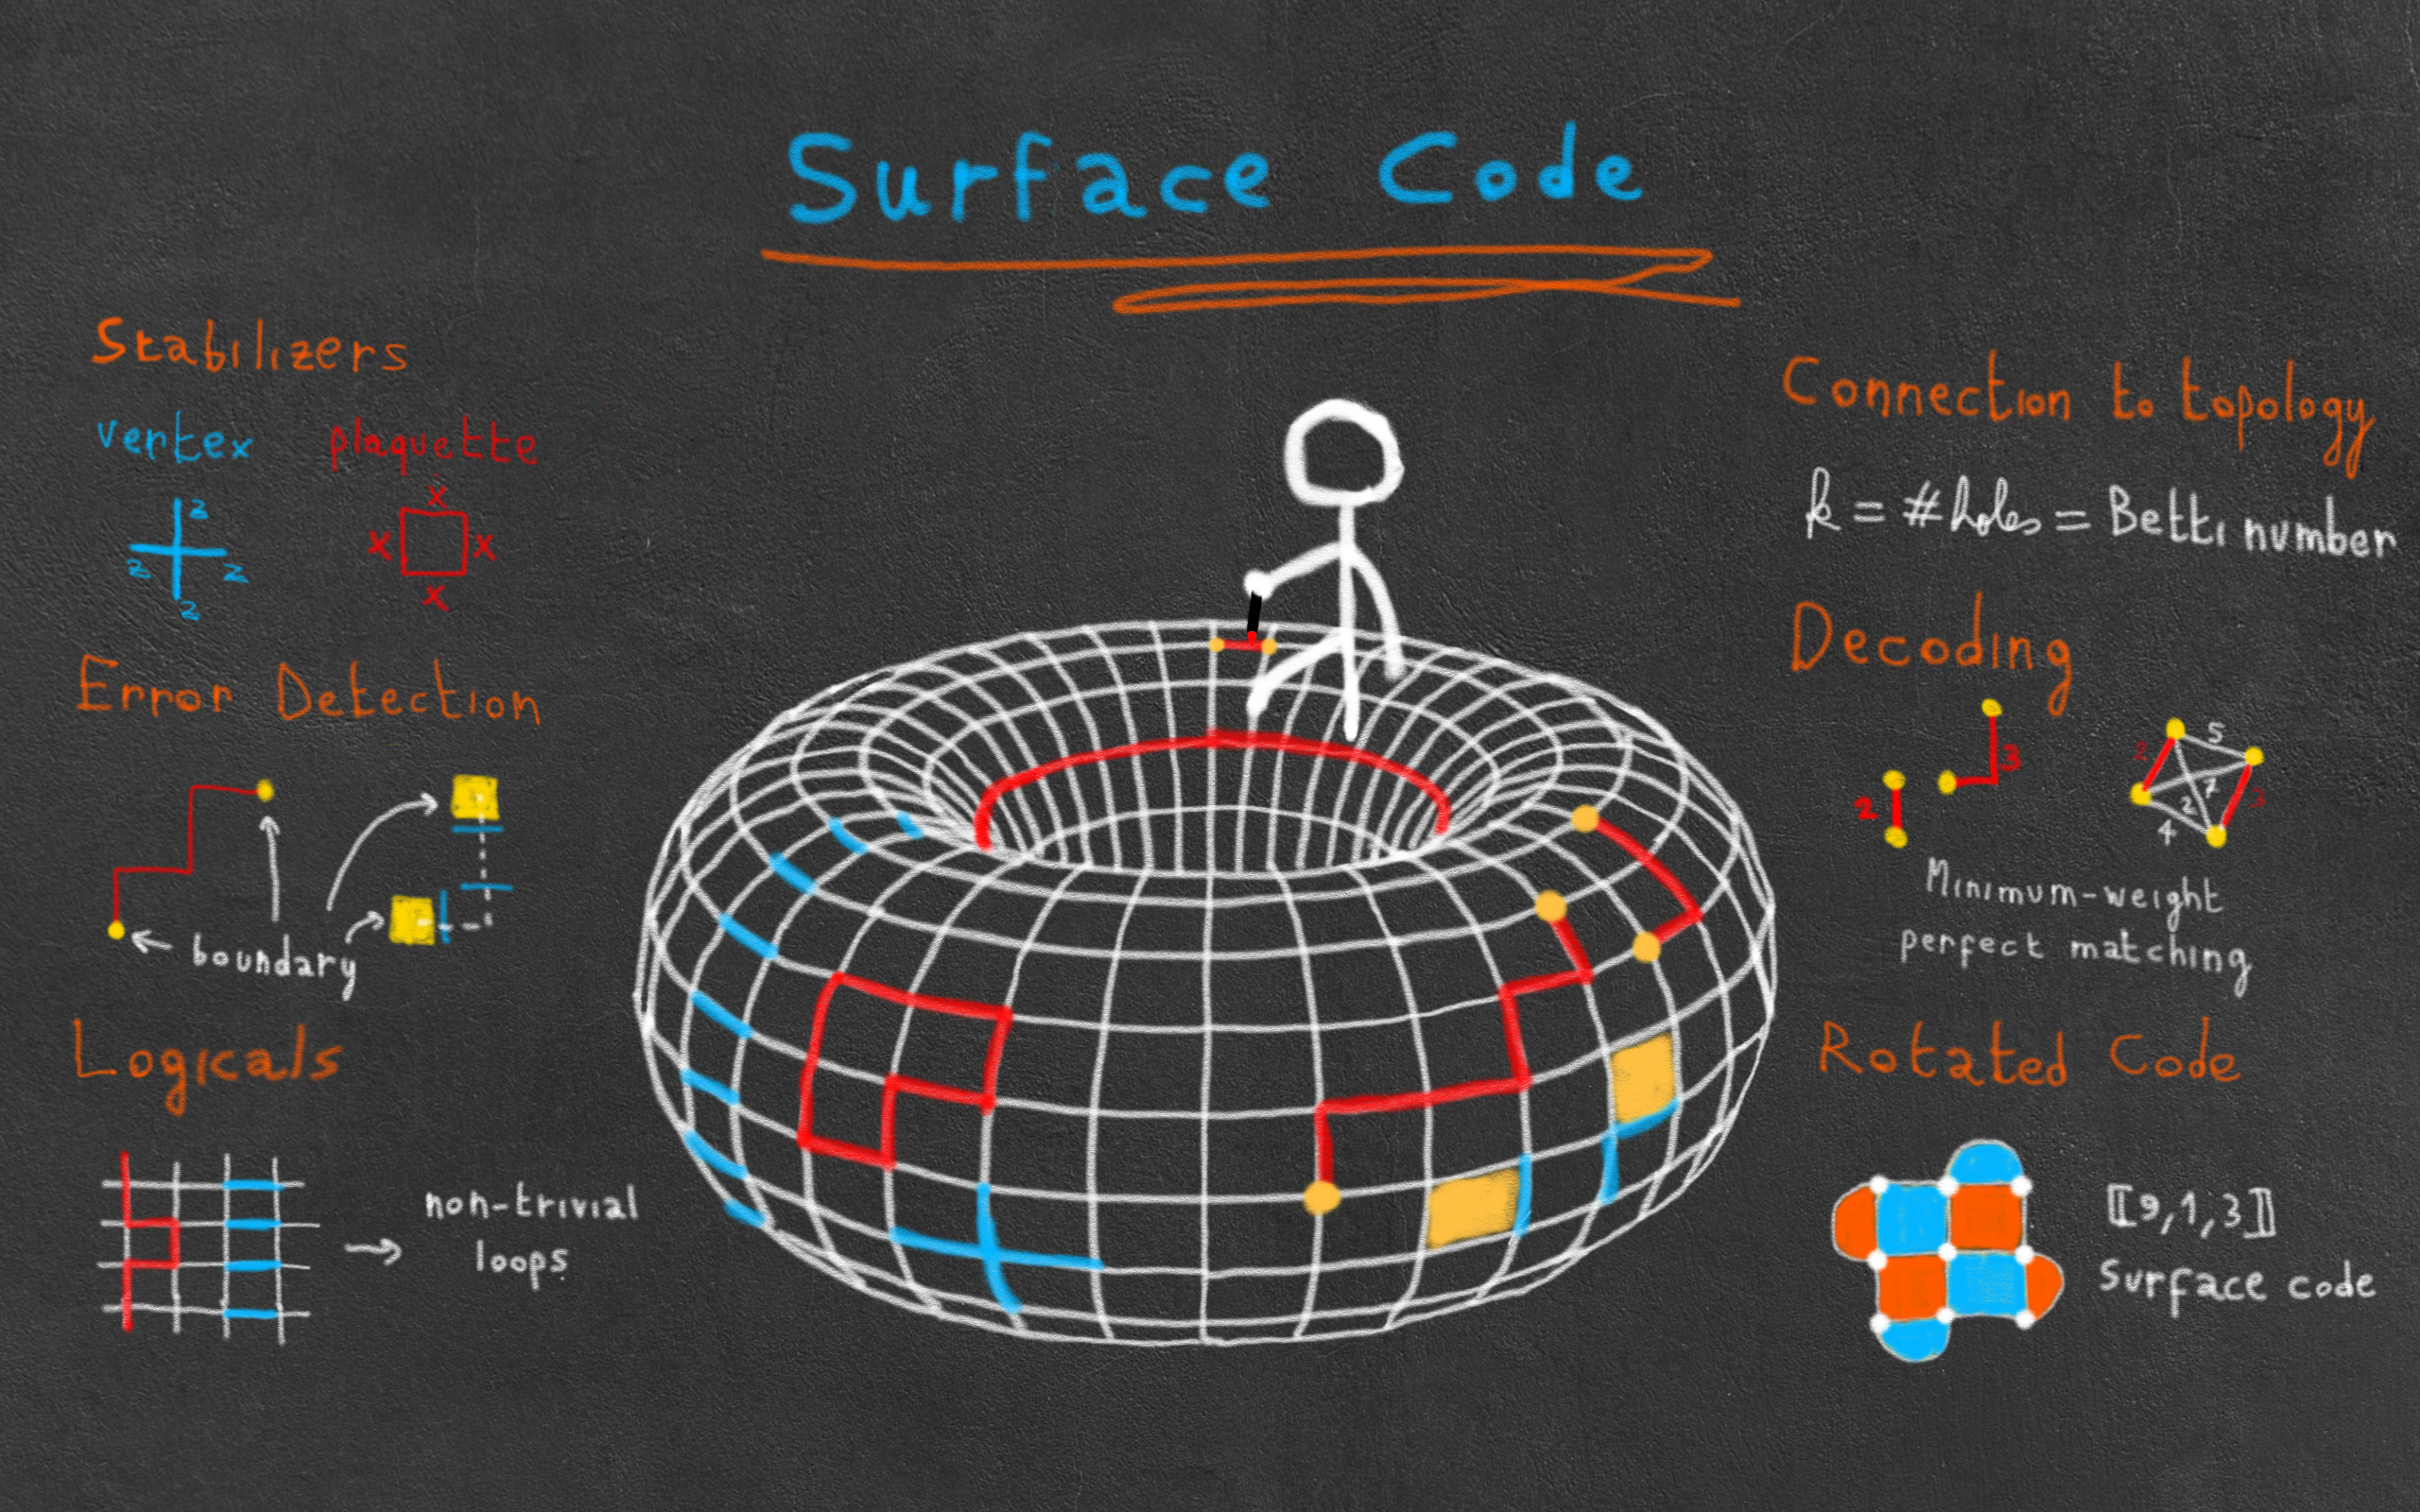 Surface Code
Stabilizers
vertex plaquette
z
z z
z
x
x x
x
Error Detection
boundary
Logicals
non-trivial
loops
Connection to topology
k = #holes = Betti number
Decoding
2
3
5
7
2
4
3
Minimum-weight
perfect matching
Rotated Code
[[9,1,3]]
Surface code